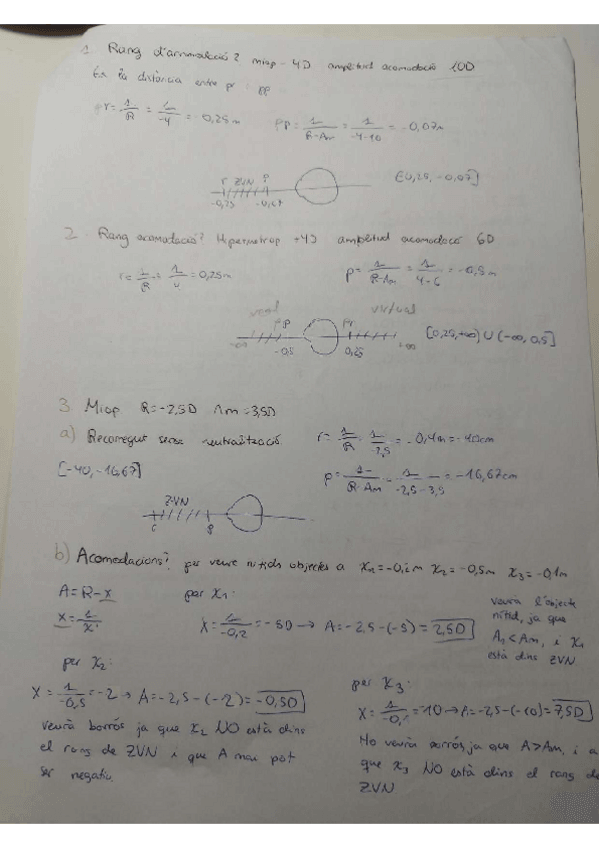 1. Rang d'acomodació? Miop -4D amplitud acomodació 10D
És la distància entre pr i pp
r = 1/R = 1/-4 = -0,25m   Pp = 1/R-Am = 1/-4-10 = -0,07m
r ZVN P
-0,25 -0,07   [-0,25, -0,07]
2. Rang acomodació? Hipermetrop +4D amplitud acomodació 6D
r = 1/R = 1/4 = 0,25m   p = 1/R-Am = 1/4-6 = -0,5m
real   virtual
Pp   Pr
-∞ -0,5 0,25 +∞   [0,25,+∞) U (-∞, 0,5]
3. Miop R=-2,5D Am=3,5D
a) Recorregut sense neutralització   r = 1/R = 1/-2,5 = -0,4m = -40cm
[-40, -16,67]   p = 1/R-Am = 1/-2,5-3,5 = -16,67cm
ZVN
r P
b) Acomodacions? per veure nítids objectes a X1=-0,2m X2=-0,5m X3=-0,1m
A = R-x   per X1:
X = 1/x   X = 1/-0,2 = -5D → A = -2,5-(-5) = 2,5D
veurà l'objecte
nítid, ja que
A1<Am, i X1
està dins ZVN
per X2:
X = 1/-0,5 = -2 → A = -2,5-(-2) = -0,5D
veurà borrós ja que X2 NO està dins
el rang de ZVN i que A mai pot
ser negatiu.
per X3:
X = 1/-0,1 = -10 → A = -2,5-(-10) = 7,5D
Ho veurà borrós, ja que A>Am, i a
que X3 NO està dins el rang de
ZVN